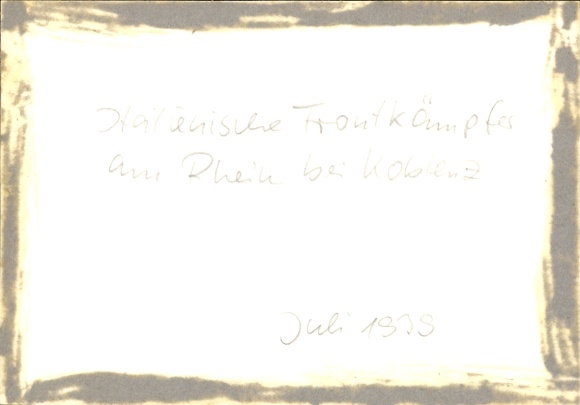 Italienische Frontkämpfer
am Rhein bei Koblenz
Juli 1939